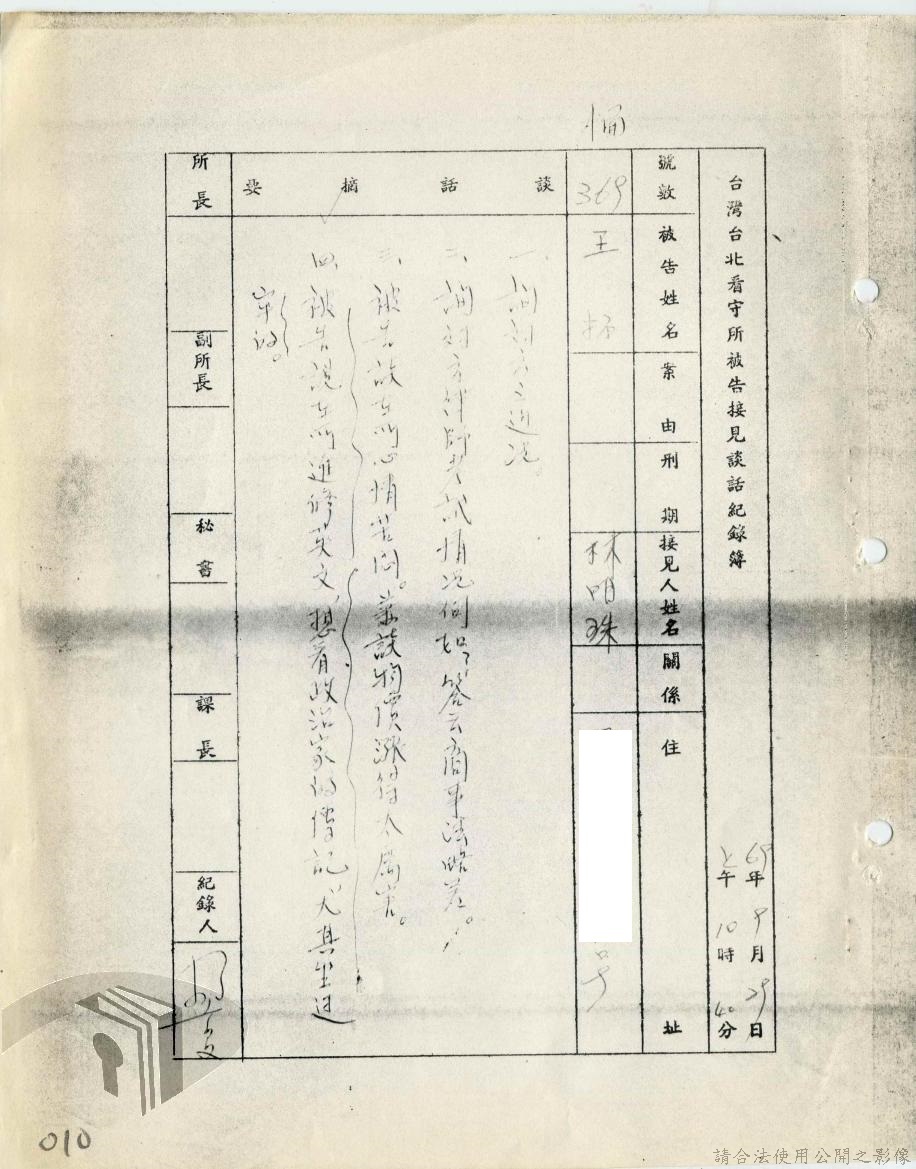 台灣台北看守所被告接見談話紀錄簿
69年9月29日
上午10時40分
號數
被告姓名
案由
刑期
接見人姓名
關係
住址
369
王
林明珠
號
談話摘要
一、詢對方之近況。
二、詢對方律師考試情況例如,答云商事法略差。
三、被告談在所心情苦悶。並談物價漲得太厲害。
四、被告說在所進修英文,想看政治家的傳記,尤其坐過
牢的。
所長
副所長
秘書
課長
紀錄人
010
請合法使用公開之影像